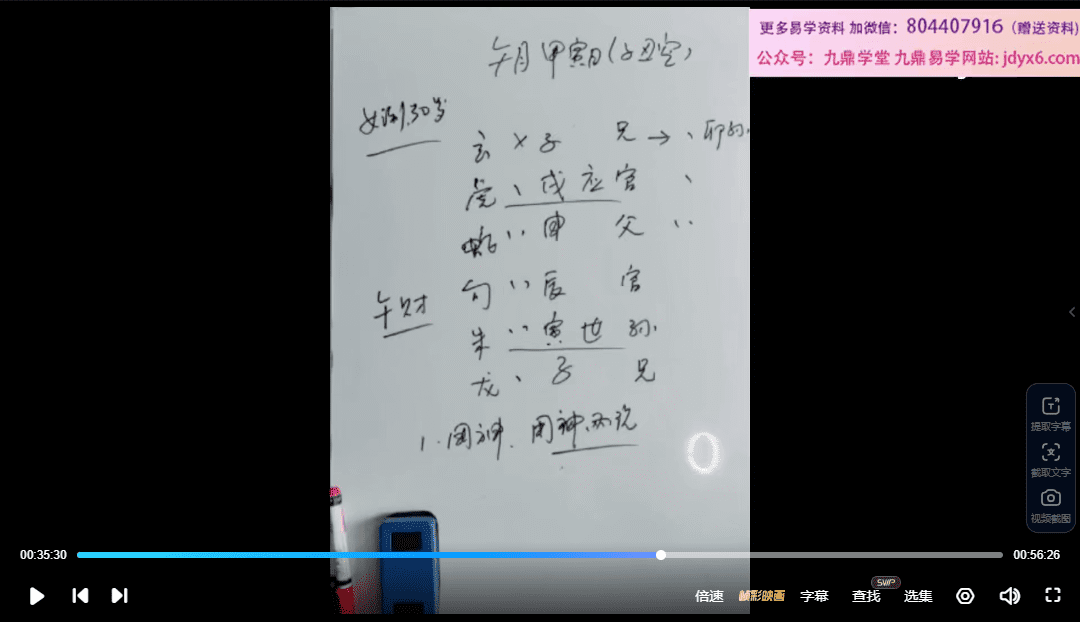 更多易学资料 加微信：804407916（赠送资料)
公众号：九鼎学堂 九鼎易学网站: jdyx6.com
午月 甲寅日(子丑空)
女测 30岁
玄 × 子 兄 → 、 卯 孙
虎 、 戌 应 官 、
蛇 、、 申 父 、、
勾 、、 辰 官
午财
朱 、、 寅 世 孙
龙 、 子 兄
1. 用神、用神两说
提取字幕
截取文字
视频截图
00:35:30
00:56:26
倍速
臻彩映画
字幕
SVIP
查找
选集